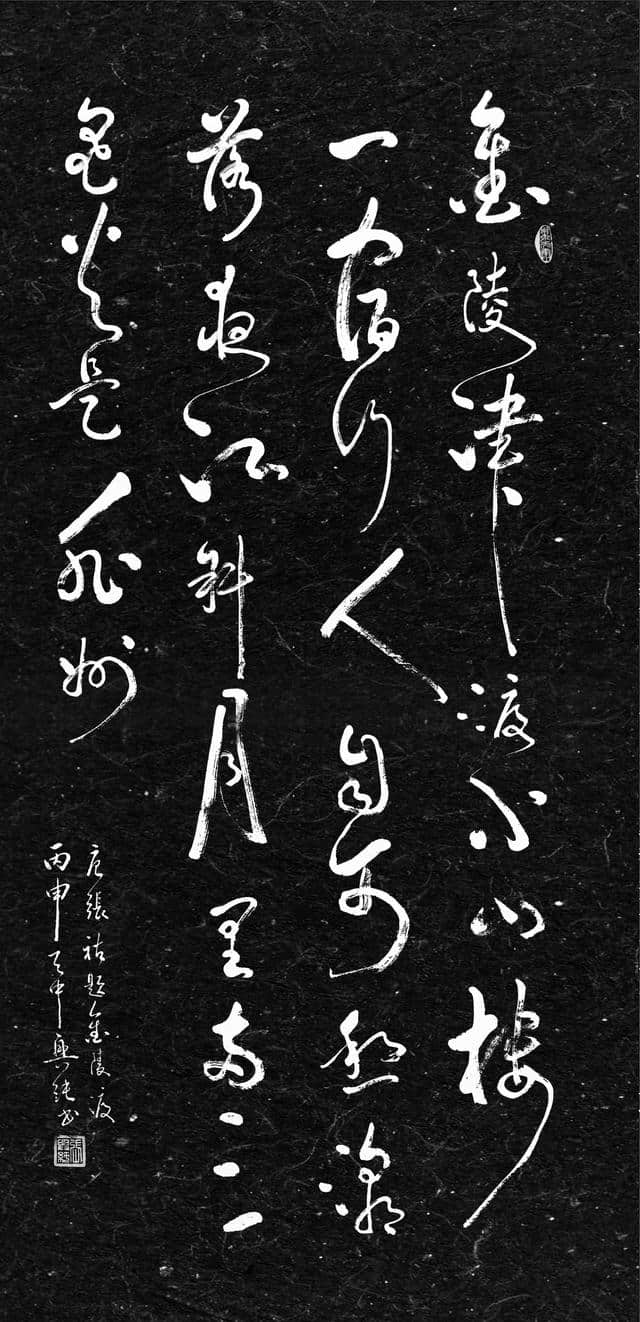 金陵津渡小山楼
一宿行人自可愁潮
落夜江斜月里两三
星火是瓜州
唐張祜題金陵渡
丙申天中興書